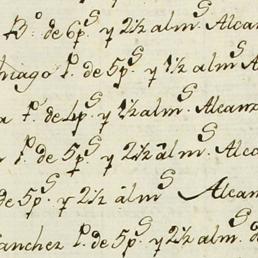 B.º de 6p.s y 2½ alm.s Alcan
hiago P. de 5p.s y 1½ alm.s A
a P.º de 4p.s y 1½ alm.s Alcanz
P. de 5p.s y 2½ alm.s Alca
de 5p.s y 2½ alm.s Alcan
anchez P. de 5p.s y 2½ alm.s